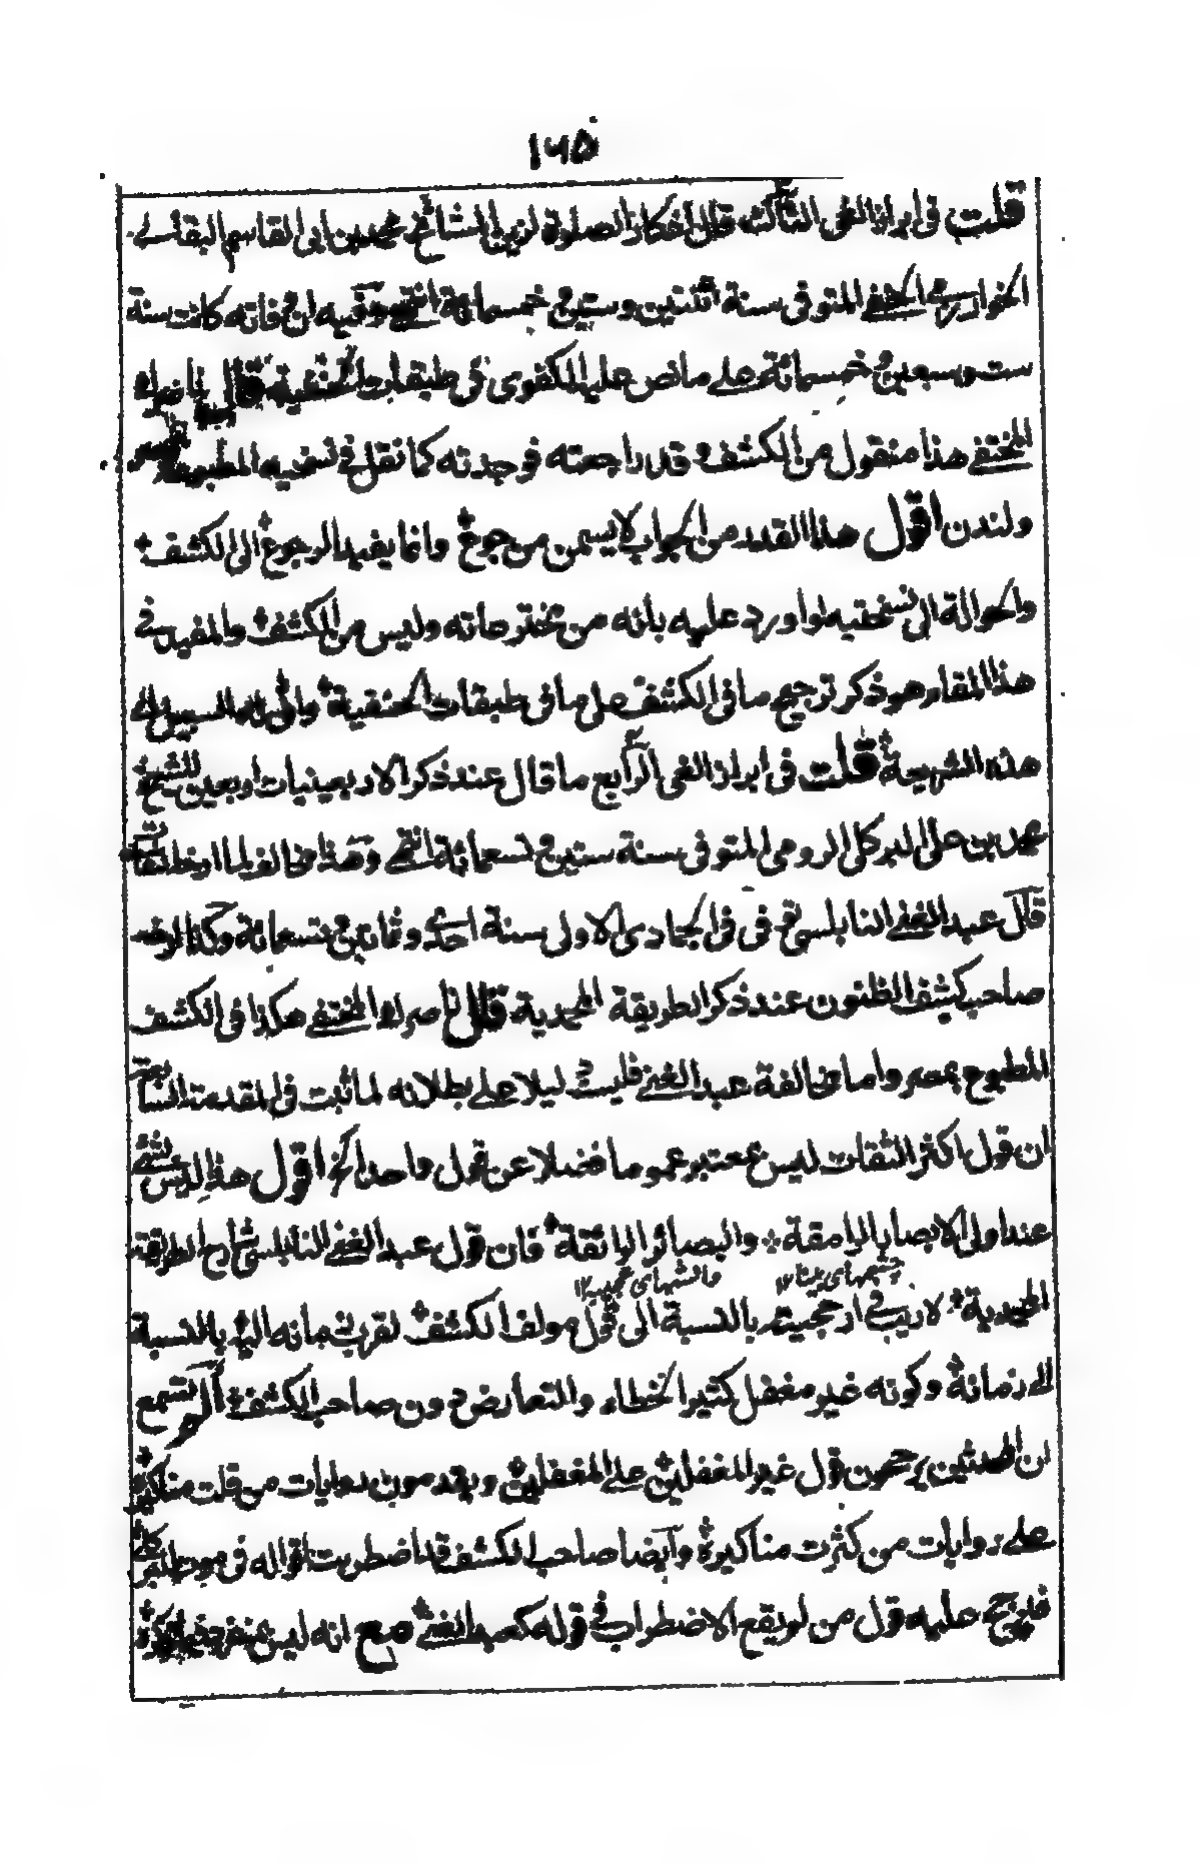 ١٦٥
قلت في ابراز الغي الثالث قال اذكار الصلوة لزين المشائخ محمد بن ابى القاسم البقالے
الخوارزمے الحنفے المتوفى سنة اثنتين وستين وخمسمائة انتهى وفيه ان وفاته كانت سنة
ست وسبعين وخمسمائة على ما نص عليه الكفوى في طبقات الحنفية قال ناصرك
المختفے هذا منقول من الكشف وقد راجعته فوجدته كما نقل في نسخيه المطبوعة
ولندن اقول هذا القدر من الجواب لا يسمن من جوع وانما يفيد الرجوع الى الكشف
والحوالة الى نسختيه لو اورد عليه بانه من مخترعاته وليس من الكشف والمفيد في
هذا المقام هو ذكر ترجيح ما في الكشف على ما في طبقات الحنفية وانى له السبيل الى
هذه الشهيمة قلت في ابراز الغى الرابع ما قال عند ذكر الاربعينيات اربعين للشيخ
محمد بن على البركلى الرومى المتوفى سنة ستين وتسعمائة انتهى وهذا مخالف لما ارخ
قال عبد الغنے النابلسى توفى في الجمادى الاولى سنة احدے وثمانين وتسعمائة وكذا ارخه
صاحب كشف الظنون عند ذكر الطريقة المحمدية قال ناصرك المختفے هكذا في الكشف
المطبوع بمصر واما مخالفة عبد الغنے فليست دليلا على بطلانه لما ثبت في المقدمة السابعة
ان قول اكثر الثقات ليس بمعتبر عموما فضلا عن قول واحد الخ اقول هذا ليس بشئے
عند اولى الابصار الرامقة والبصائر الرائقة فان قول عبد الغنے النابلسى شارح الطريقة
چشمهاى بينا ١٢ دانشهاى عجيبه ١٢
المحمدية لا ريب في ارجحيته بالنسبة الى قول مولف الكشف لقرب زمانه اليه بالنسبة
الى زمانه وكونه غير مغفل كثير الخطاء والتعارض دون صاحب الكشف الم تسمع
ان المحدثين يرجحون قول غير المغفلين على المغفلين ويقدمون روايات من قلت مناكيره
على روايات من كثرت مناكيره وايضا صاحب الكشف قد اضطربت اقواله في موت البركلى
فيرجح عليه قول من لم يقع الاضطراب في قوله كعبد الغنے مع انه ليس